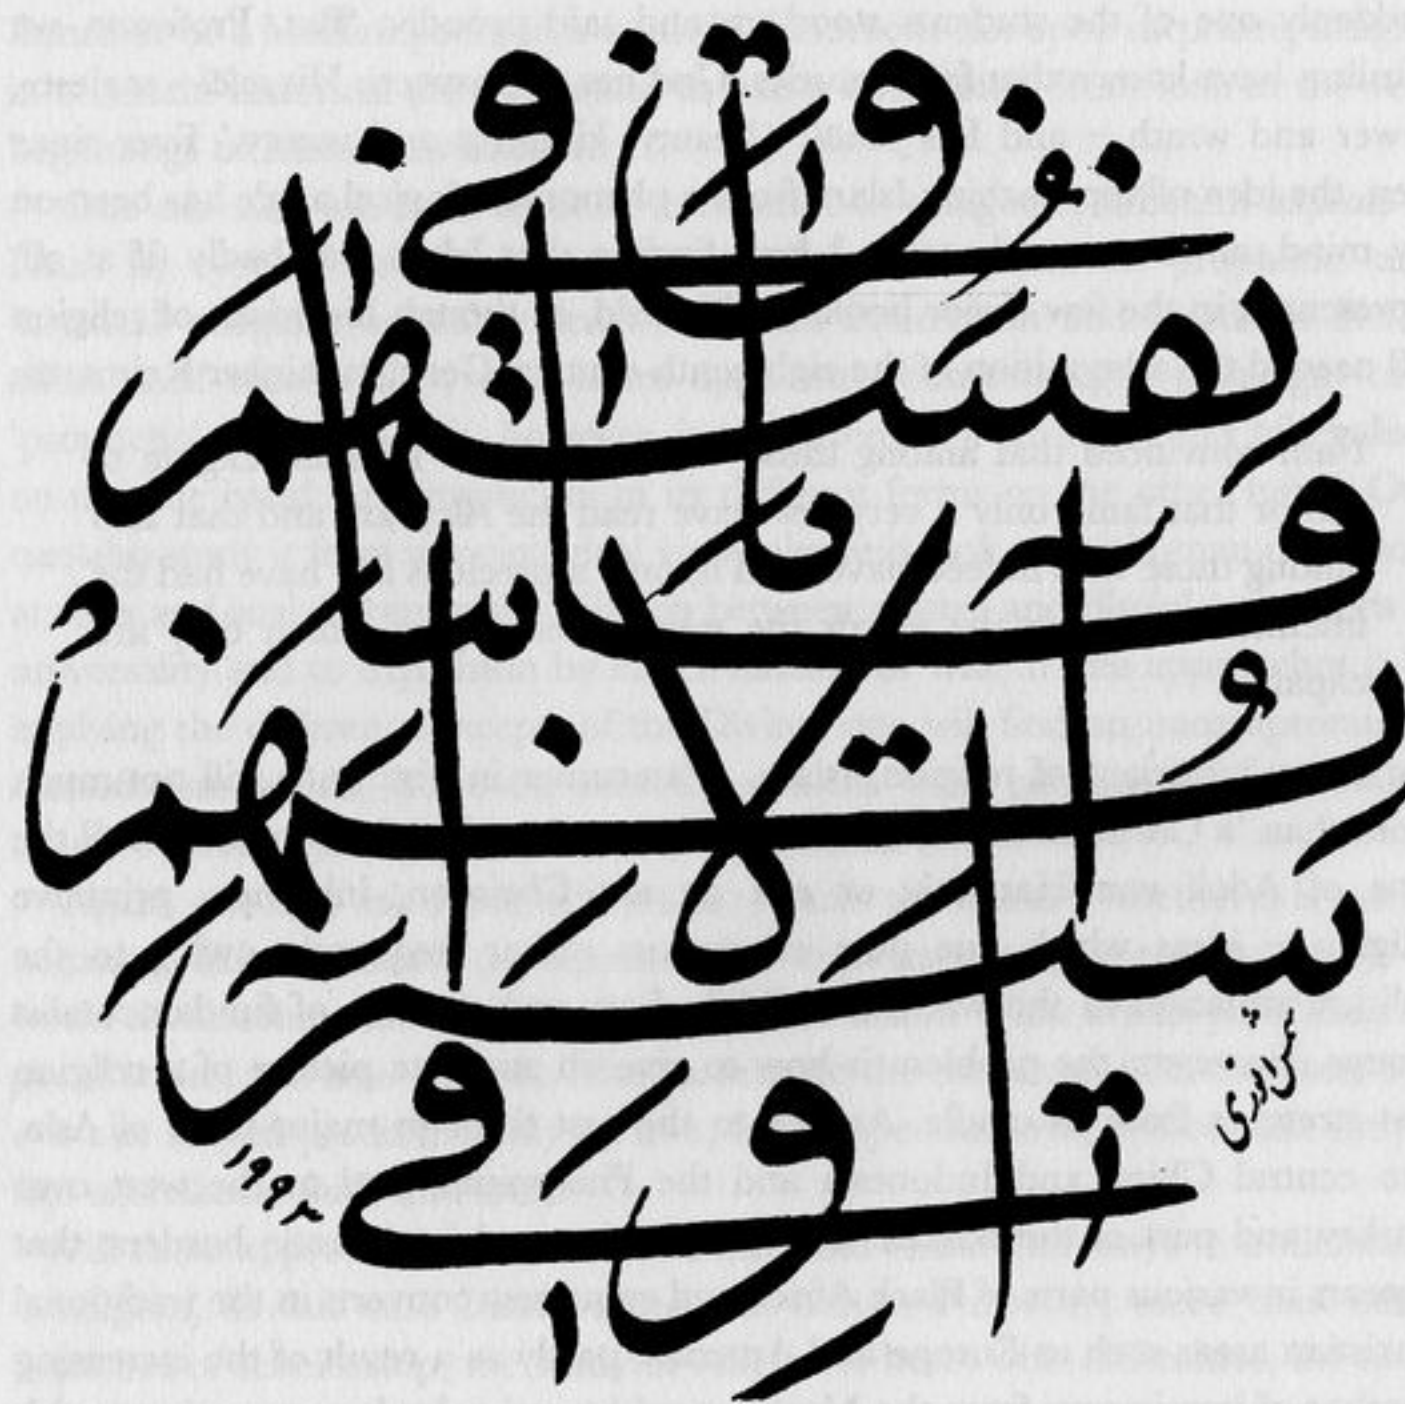 سنريهم آياتنا في الآفاق وفي أنفسهم
شمس
١٩٩٢